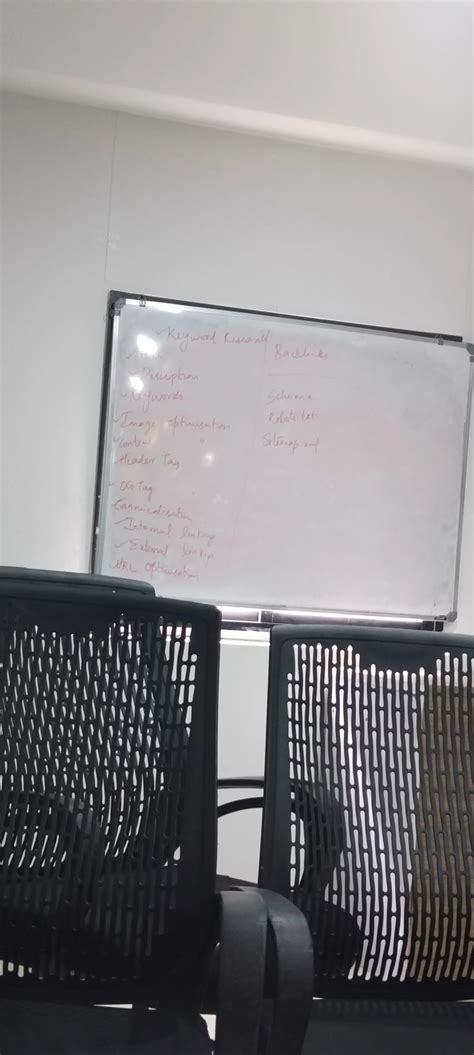 Keyword Research
Description
Keywords
Image optimisation
Content "
Header Tag
OG Tag
Internal linking
External linking
URL optimisation
Backlinks
Schema
Robots txt
Sitemap xml